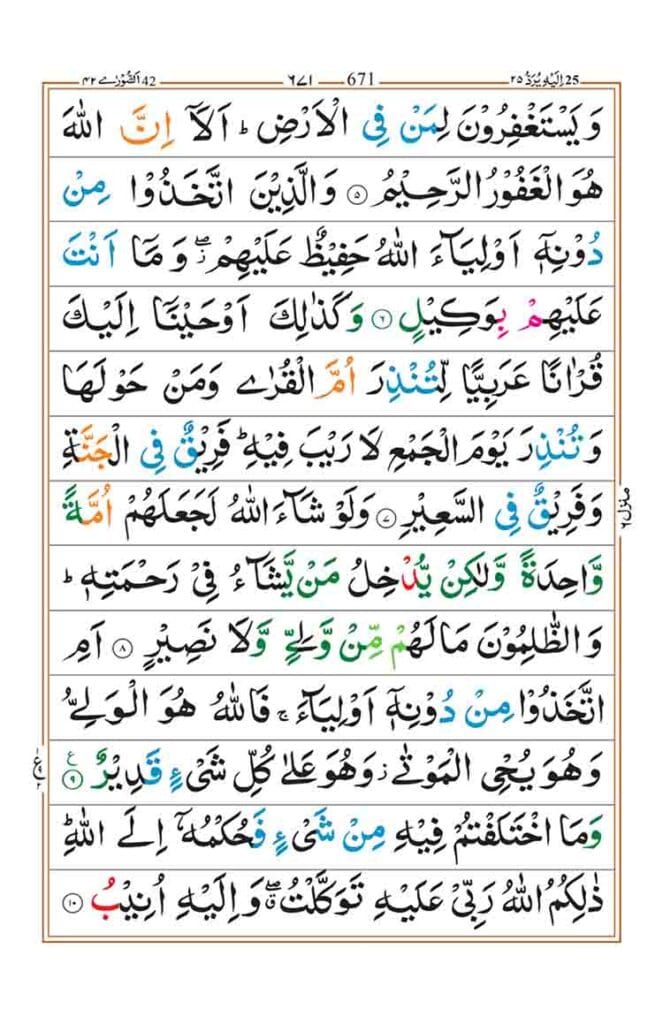 اِلَيْهِ يُرَدُّ ٢٥ 25 671 ٦٧١ اَلشُّوْرٰى ٤٢ 42
وَيَسْتَغْفِرُوْنَ لِمَنْ فِى الْاَرْضِ ؕ اَلَاۤ اِنَّ اللّٰهَ
هُوَ الْغَفُوْرُ الرَّحِيْمُ ۝٥ وَالَّذِيْنَ اتَّخَذُوْا مِنْ
دُوْنِهٖۤ اَوْلِيَآءَ اللّٰهُ حَفِيْظٌ عَلَيْهِمْ ۖز وَمَاۤ اَنْتَ
عَلَيْهِمْ بِوَكِيْلٍ ۝٦ وَكَذٰلِكَ اَوْحَيْنَاۤ اِلَيْكَ
قُرْاٰنًا عَرَبِيًّا لِّتُنْذِرَ اُمَّ الْقُرٰى وَمَنْ حَوْلَهَا
وَتُنْذِرَ يَوْمَ الْجَمْعِ لَا رَيْبَ فِيْهِ ؕ فَرِيْقٌ فِى الْجَنَّةِ
وَفَرِيْقٌ فِى السَّعِيْرِ ۝٧ وَلَوْ شَآءَ اللّٰهُ لَجَعَلَهُمْ اُمَّةً
وَّاحِدَةً وَّلٰكِنْ يُّدْخِلُ مَنْ يَّشَآءُ فِىْ رَحْمَتِهٖ ؕ
وَالظّٰلِمُوْنَ مَا لَهُمْ مِّنْ وَّلِىٍّ وَّلَا نَصِيْرٍ ۝٨ اَمِ
اتَّخَذُوْا مِنْ دُوْنِهٖۤ اَوْلِيَآءَ ۚ فَاللّٰهُ هُوَ الْوَلِىُّ
وَهُوَ يُحْىِ الْمَوْتٰى ز وَهُوَ عَلٰى كُلِّ شَىْءٍ قَدِيْرٌ ۝٩ ع
وَمَا اخْتَلَفْتُمْ فِيْهِ مِنْ شَىْءٍ فَحُكْمُهٗۤ اِلَى اللّٰهِ ؕ
ذٰلِكُمُ اللّٰهُ رَبِّىْ عَلَيْهِ تَوَكَّلْتُ ۖق وَاِلَيْهِ اُنِيْبُ ۝١٠
منزل ٦